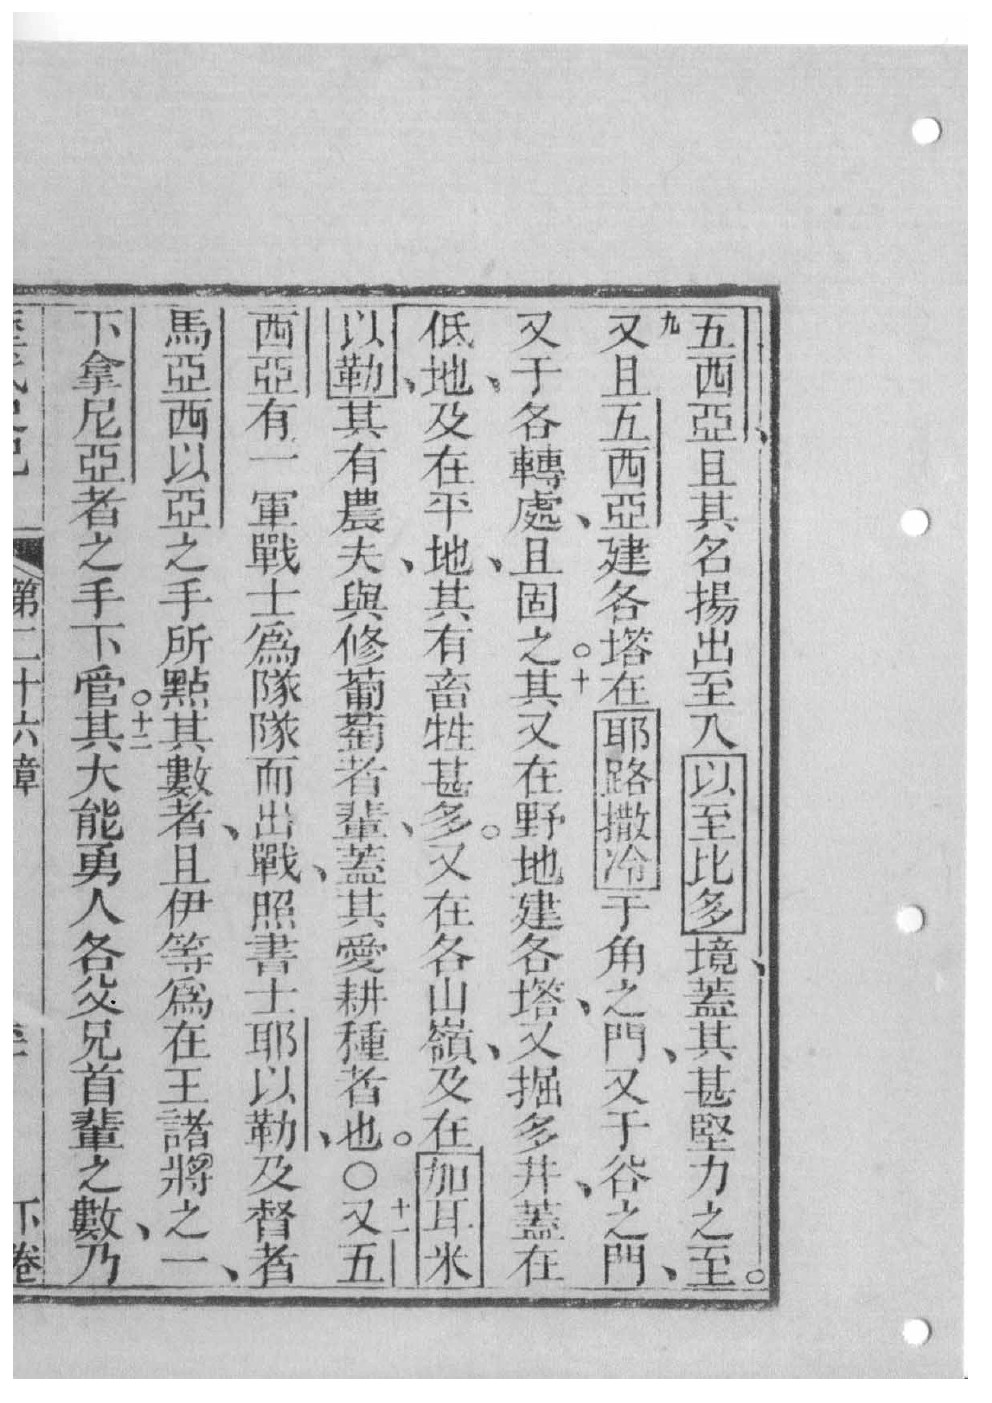 五西亞、且其名揚出至入以至比多境、蓋其甚堅力之至。
九又且五西亞建各塔在耶路撒冷于角之門、又于谷之門、
又于各轉處、且固之。十其又在野地建各塔、又掘多井、蓋在
低地、及在平地、其有畜牲甚多。又在各山嶺、及在加耳米
以勒、其有農夫、與修葡萄者輩、蓋其愛耕種者也。○十一又五
西亞有一軍戰士爲隊隊而出戰、照書士耶以勒、及督者
馬亞西以亞之手所點其數者、且伊等爲在王諸將之一、
下拿尼亞者之手下管。十二其大能勇人各父兄首輩之數、乃
第二十六章 下卷